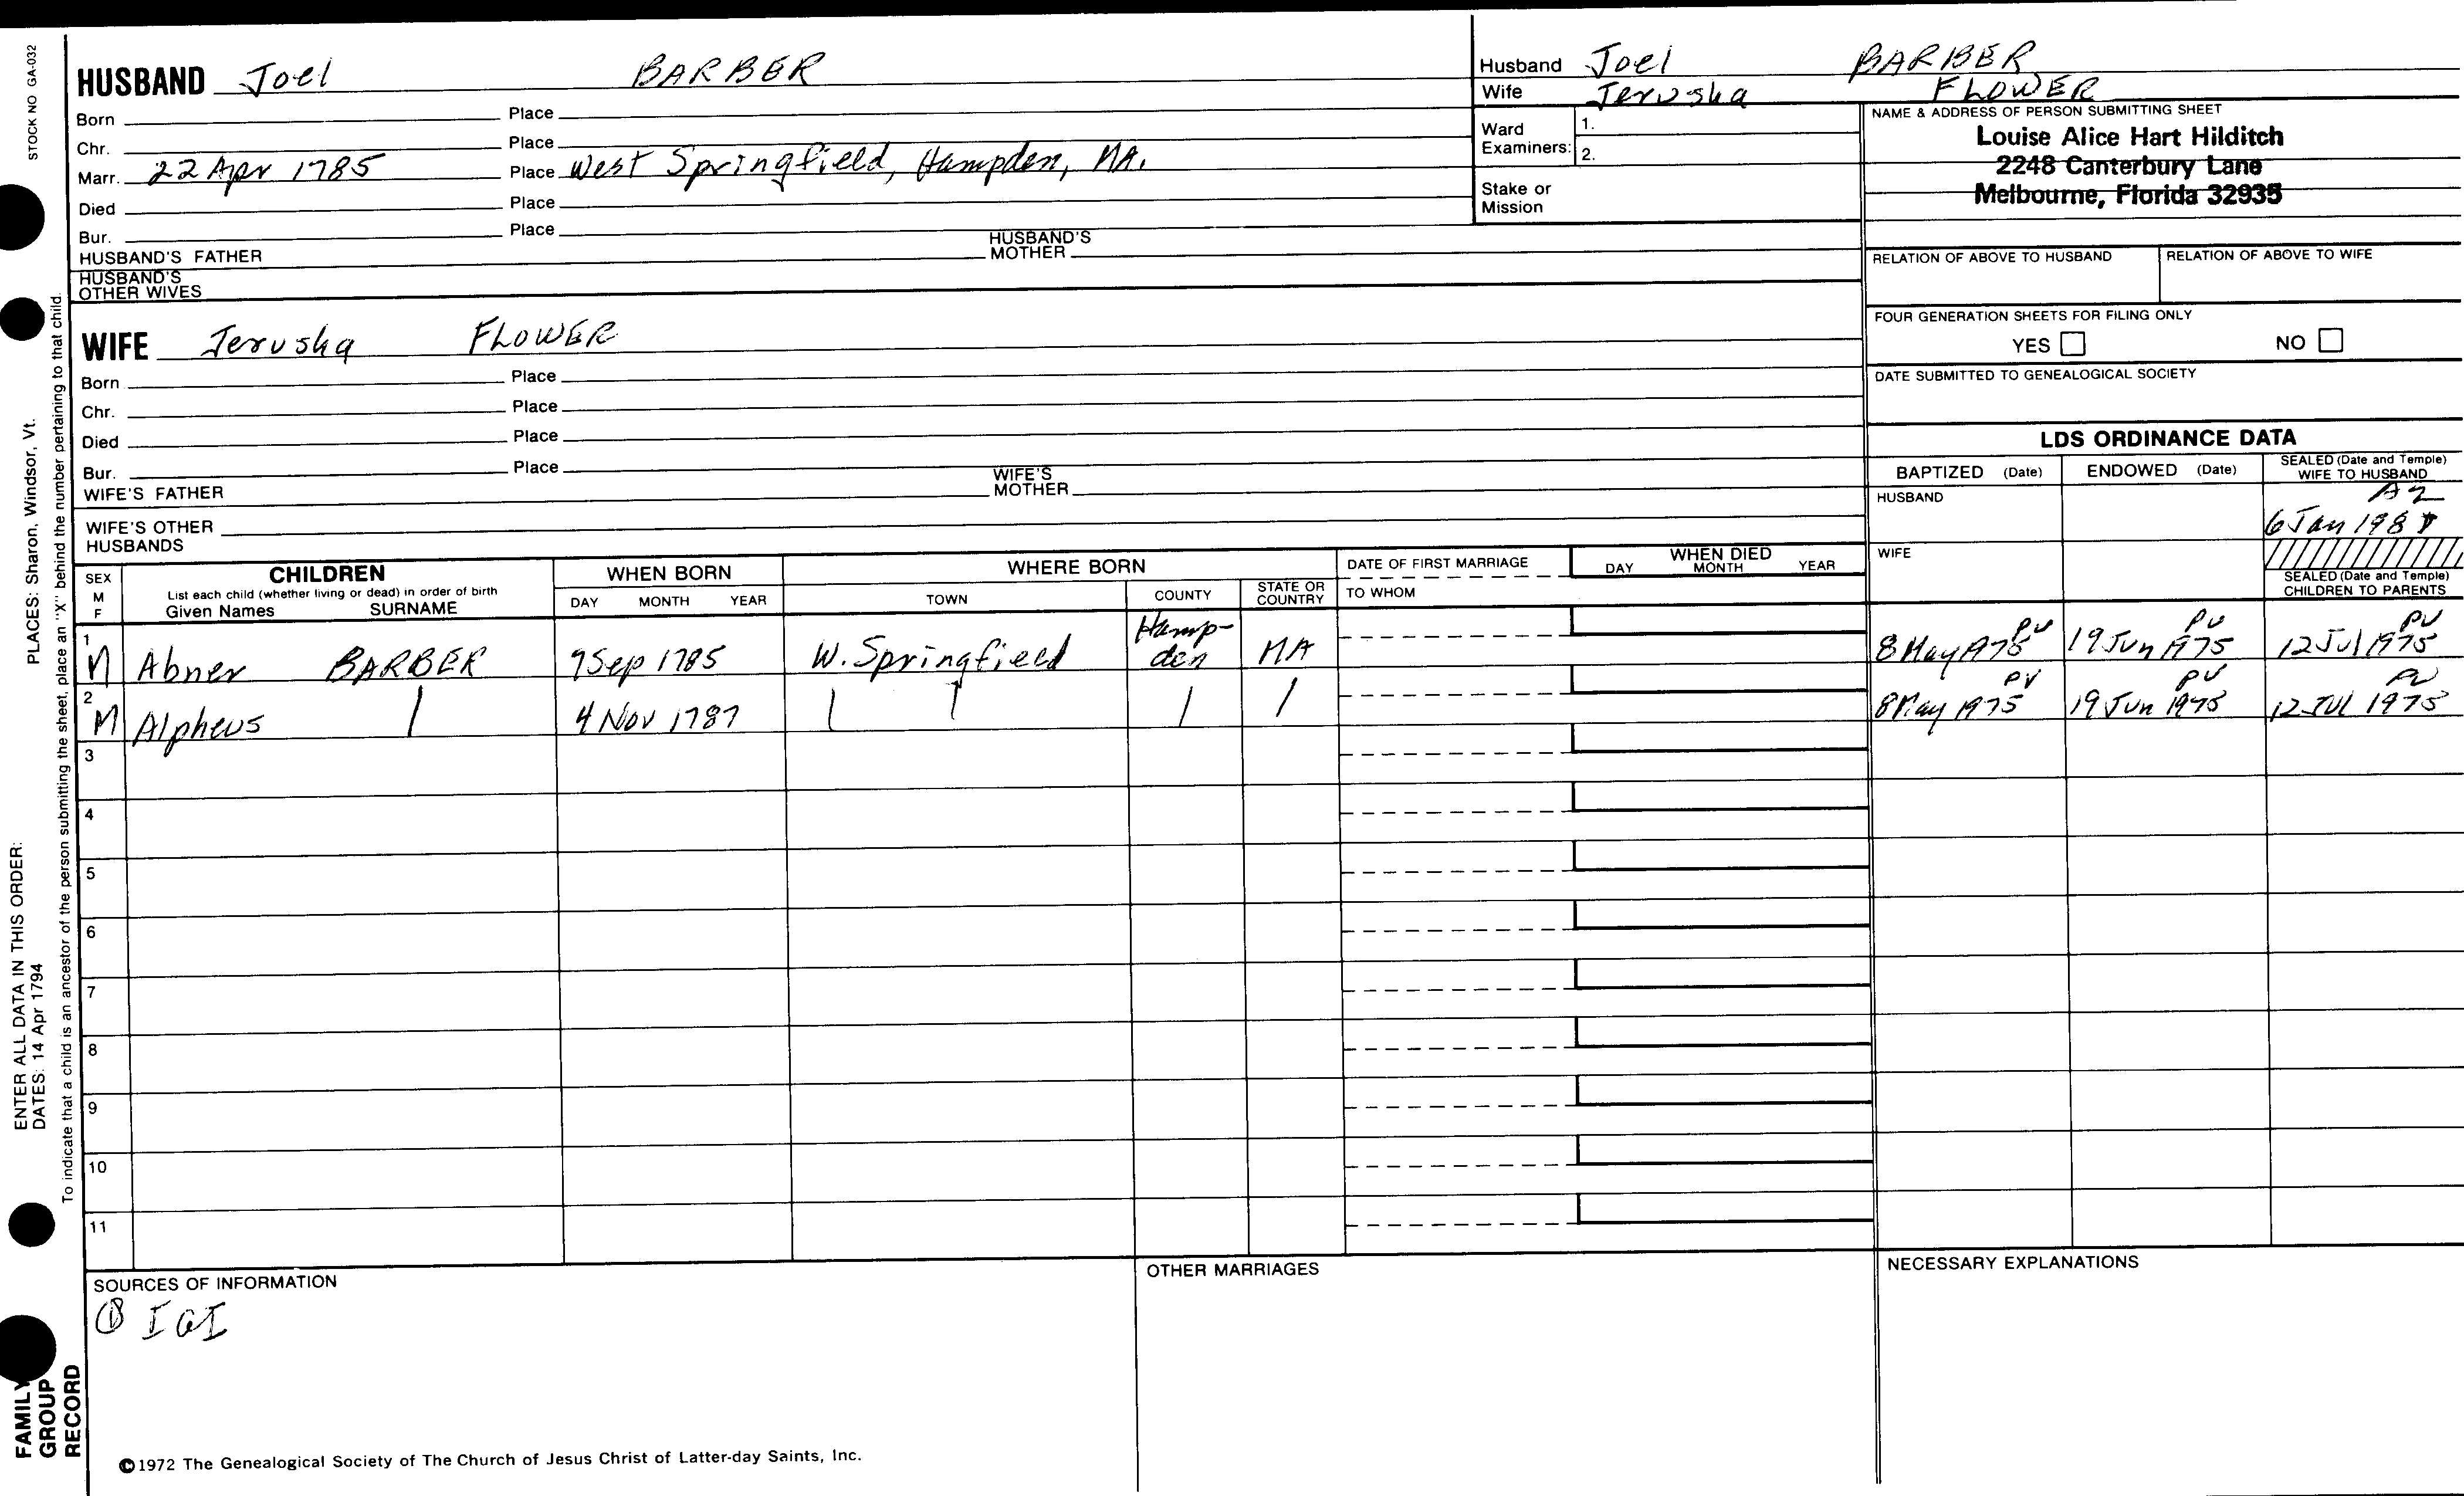 STOCK NO GA-032
HUSBAND Joel BARBER
Born Place
Chr. Place
Marr. 22 Apr 1785 Place West Springfield, Hampden, MA.
Died Place
Bur. Place
HUSBAND'S FATHER HUSBAND'S MOTHER
HUSBAND'S OTHER WIVES
Husband Joel BARBER
Wife Jerusha FLOWER
Ward Examiners: 1.
2.
Stake or Mission
NAME & ADDRESS OF PERSON SUBMITTING SHEET
Louise Alice Hart Hilditch
2248 Canterbury Lane
Melbourne, Florida 32935
RELATION OF ABOVE TO HUSBAND RELATION OF ABOVE TO WIFE
FOUR GENERATION SHEETS FOR FILING ONLY
YES NO
DATE SUBMITTED TO GENEALOGICAL SOCIETY
WIFE Jerusha FLOWER
Born Place
Chr. Place
Died Place
Bur. Place
WIFE'S FATHER WIFE'S MOTHER
WIFE'S OTHER HUSBANDS
LDS ORDINANCE DATA
BAPTIZED (Date) ENDOWED (Date) SEALED (Date and Temple) WIFE TO HUSBAND
HUSBAND AZ
6 Jan
WIFE
SEALED (Date and Temple) CHILDREN TO PARENTS
SEX M F
CHILDREN
List each child (whether living or dead) in order of birth
Given Names SURNAME
WHEN BORN
DAY MONTH YEAR
WHERE BORN
TOWN COUNTY STATE OR COUNTRY
DATE OF FIRST MARRIAGE
TO WHOM
WHEN DIED
DAY MONTH YEAR
1 M Abner BARBER 9 Sep 1785 W. Springfield Hamp-den MA 8 May 1975 PV 19 Jun 1975 PV 12 Jul 1975 PV
2 M Alpheus 4 Nov 1787 8 May 1975 PV 19 Jun 1975 PV 12 JUL 1975 PV
3
4
5
6
7
8
9
10
11
SOURCES OF INFORMATION
① IGI
OTHER MARRIAGES
NECESSARY EXPLANATIONS
©1972 The Genealogical Society of The Church of Jesus Christ of Latter-day Saints, Inc.
ENTER ALL DATA IN THIS ORDER:
DATES: 14 Apr 1794 PLACES: Sharon, Windsor, Vt.
To indicate that a child is an ancestor of the person submitting the sheet, place an "X" behind the number pertaining to that child.
FAMILY GROUP RECORD